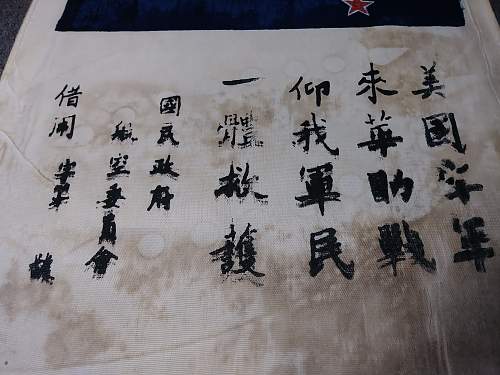 美國空軍
來華助戰
仰我軍民
一體救護
國民政府
航空委員會
借